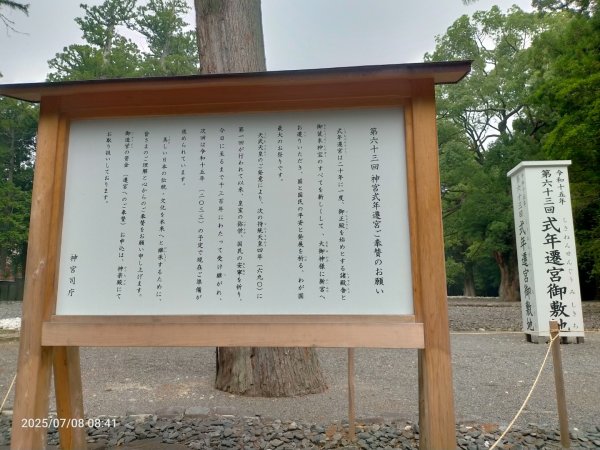 第六十三回 神宮式年遷宮ご奉賛のお願い
式年遷宮は二十年に一度、御正殿を始めとする諸殿舎と
御装束神宝のすべてを新しくして、大御神様に新宮へ
お遷りいただき、国と国民の平安と発展を祈る、わが国
最大のお祭りです。
天武天皇のご発意により、次の持統天皇四年（六九〇）に
第一回が行われて以来、皇室の弥栄、国民の安寧を祈り、
今日に至るまで千三百年にわたって受け継がれ、
次回は令和十五年（二〇三三）の予定で現在ご準備が
進められています。
美しい日本の伝統・文化を未来へと継承するために、
皆さまのご理解と心からのご奉賛をお願い申し上げます。
御造営の資金（遷宮へのご奉賛）お申込は、神楽殿にて
お取り扱いしております。
神宮司庁
令和十五年
第六十三回 式年遷宮御敷地
しきねんせんぐうみしきち
式年遷宮御敷地
2025/07/08 08:41